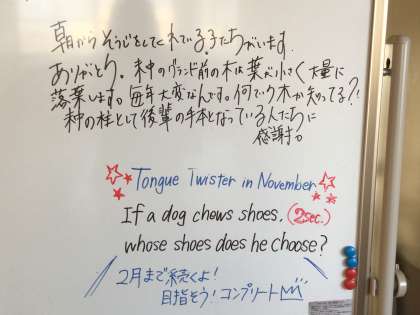 朝からそうじをしてくれている子たちがいます。
ありがとう。末中のグランド前の木は葉が小さく大量に
落葉します。毎年大変なんです。何でいう木か知ってる?!
末中の柱として後輩の手本となっている人たちに
感謝。
Tongue Twister in November
If a dog chews shoes, (2sec.)
whose shoes does he choose?
2月まで続くよ!
目指そう!コンプリート